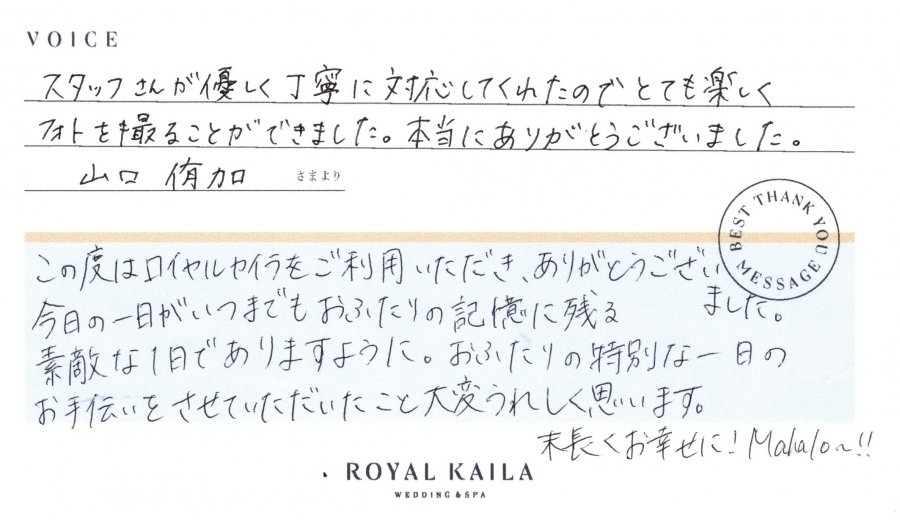 VOICE
スタッフさんが優しく丁寧に対応してくれたのでとても楽しく
フォトを撮ることができました。本当にありがとうございました。
山口 侑加 さまより
BEST THANK YOU MESSAGE
この度はロイヤルカイラをご利用いただき、ありがとうござい
ました。
今日の一日がいつまでもおふたりの記憶に残る
素敵な1日でありますように。おふたりの特別な一日の
お手伝いをさせていただいたこと大変うれしく思います。
末長くお幸せに! Mahalo~!!
ROYAL KAILA
WEDDING & SPA